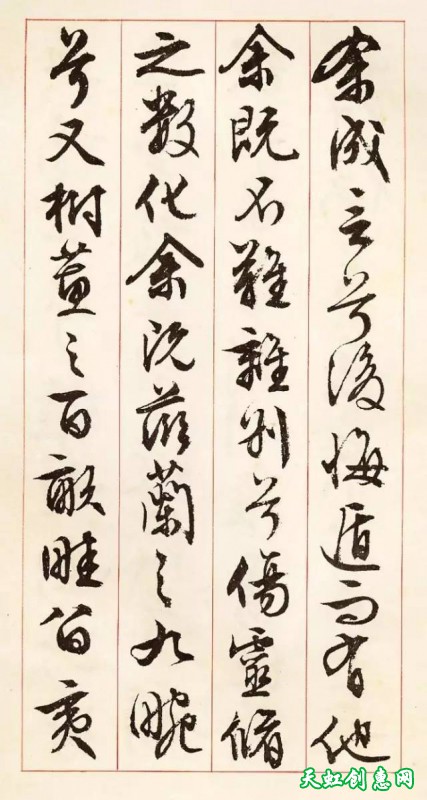 余成言兮後悔遁而有他
余既不難離別兮傷靈脩
之數化余既滋蘭之九畹
兮又樹蕙之百畝畦留夷
天虹创惠网